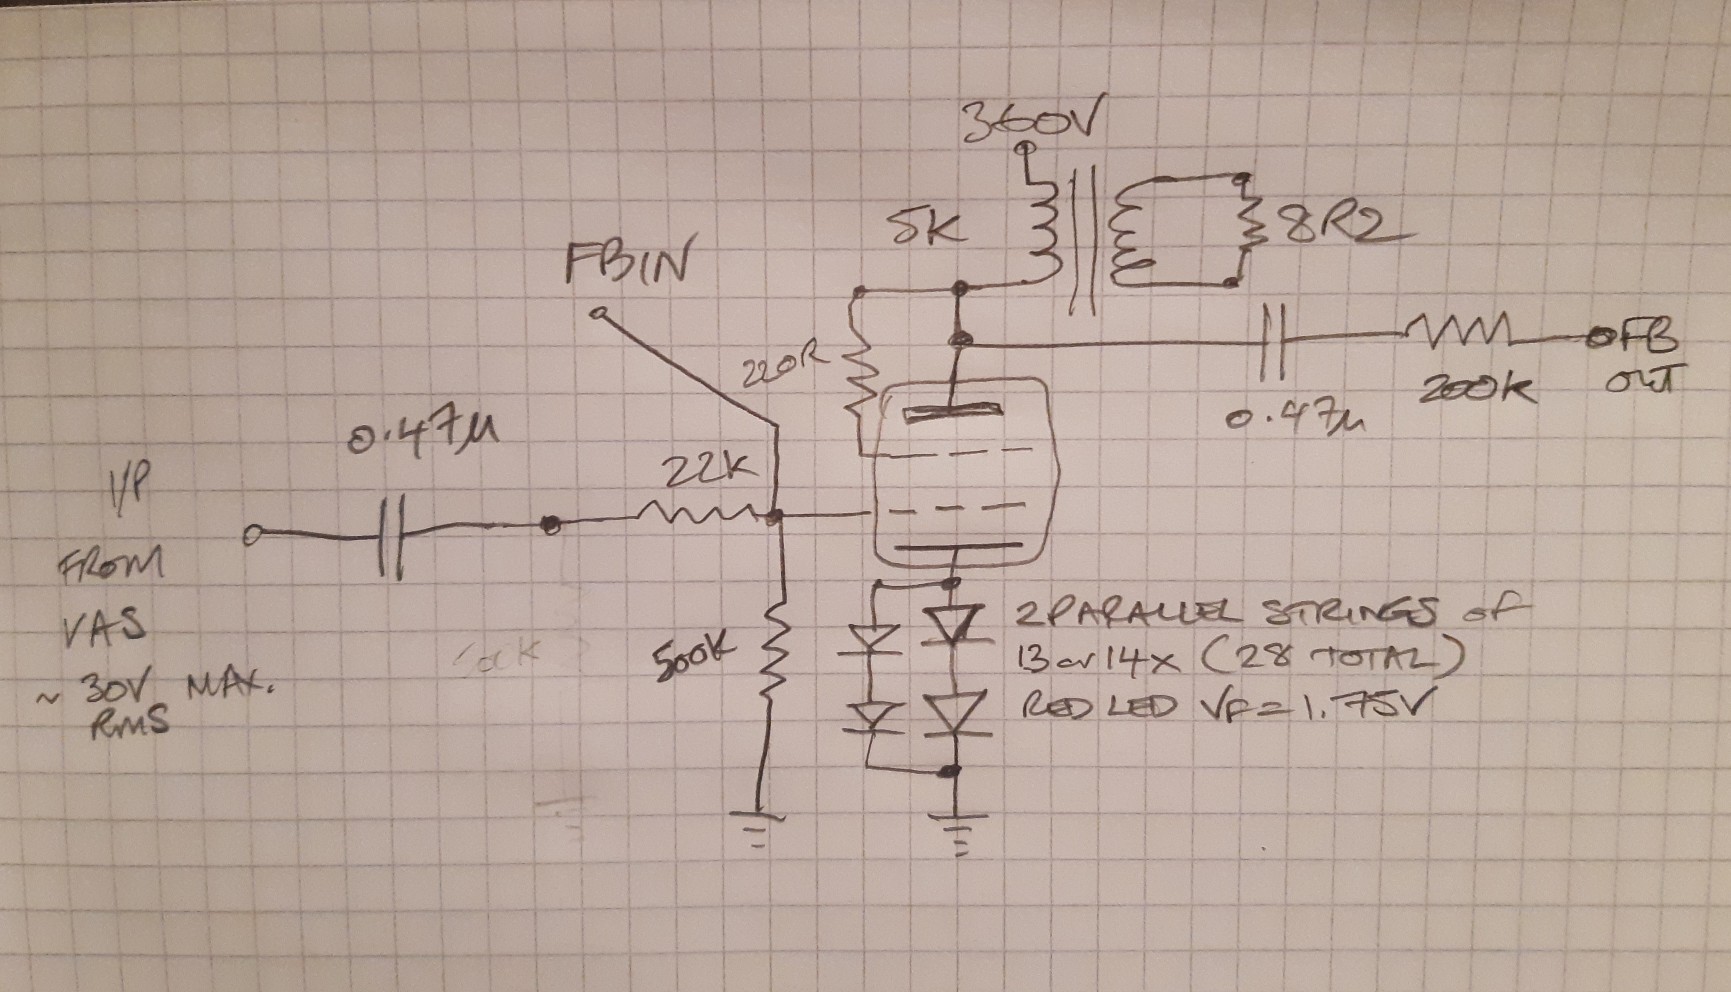 360V
5K
8R2
FBIN
220R
FB
OUT
200K
0.47µ
0.47µ
22K
I/P
FROM
VAS
~ 30V MAX.
RMS
500K
2 PARALLEL STRINGS OF
13 or 14x (28 TOTAL)
RED LED VF=1.75V